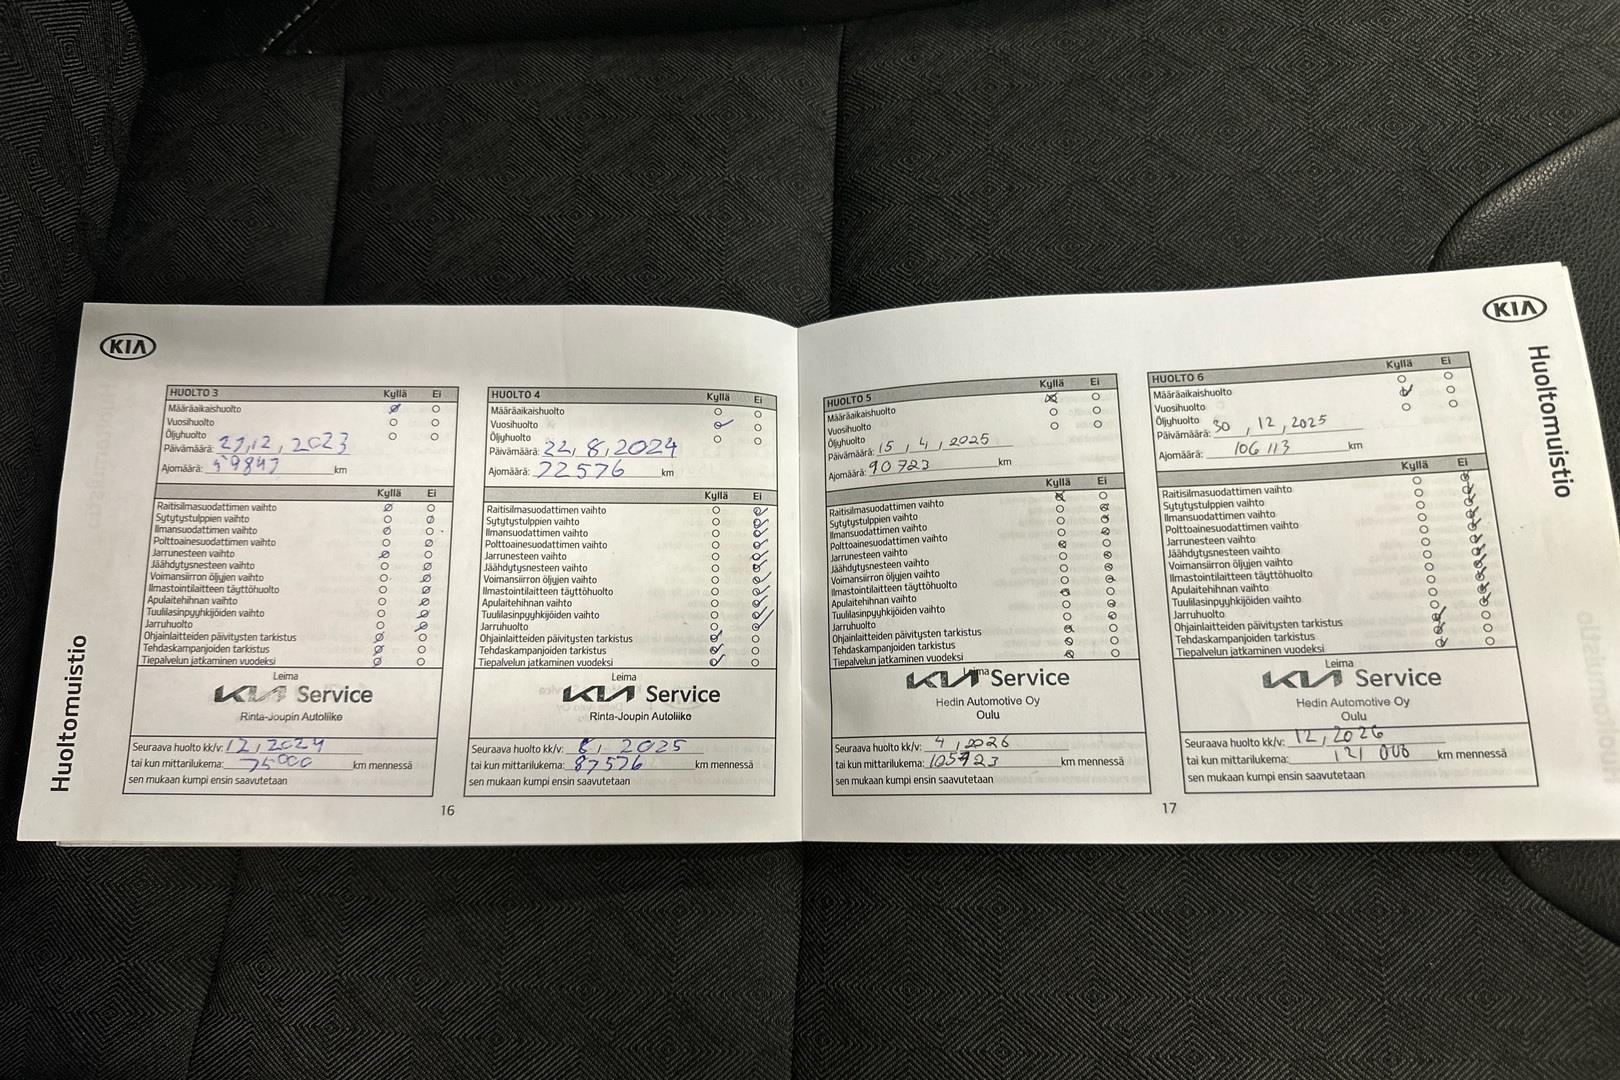 KIA
HUOLTO 3 Kyllä Ei
Määräaikaishuolto
Vuosihuolto
Öljyhuolto
Päivämäärä: 27,12,2023
Ajomäärä: 59847 km
Kyllä Ei
Raitisilmasuodattimen vaihto
Sytytystulppien vaihto
Ilmansuodattimen vaihto
Polttoainesuodattimen vaihto
Jarrunesteen vaihto
Jäähdytysnesteen vaihto
Voimansiirron öljyjen vaihto
Ilmastointilaitteen täyttöhuolto
Apulaitehihnan vaihto
Tuulilasinpyyhkijöiden vaihto
Jarruhuolto
Ohjainlaitteiden päivitysten tarkistus
Tehdaskampanjoiden tarkistus
Tiepalvelun jatkaminen vuodeksi
Leima
KIA Service
Rinta-Joupin Autoliike
Seuraava huolto kk/v: 12,2024
tai kun mittarilukema: 75000 km mennessä
sen mukaan kumpi ensin saavutetaan
HUOLTO 4 Kyllä Ei
Määräaikaishuolto
Vuosihuolto
Öljyhuolto
Päivämäärä: 22,8,2024
Ajomäärä: 72576 km
Kyllä Ei
Raitisilmasuodattimen vaihto
Sytytystulppien vaihto
Ilmansuodattimen vaihto
Polttoainesuodattimen vaihto
Jarrunesteen vaihto
Jäähdytysnesteen vaihto
Voimansiirron öljyjen vaihto
Ilmastointilaitteen täyttöhuolto
Apulaitehihnan vaihto
Tuulilasinpyyhkijöiden vaihto
Jarruhuolto
Ohjainlaitteiden päivitysten tarkistus
Tehdaskampanjoiden tarkistus
Tiepalvelun jatkaminen vuodeksi
Leima
KIA Service
Rinta-Joupin Autoliike
Seuraava huolto kk/v: 8, 2025
tai kun mittarilukema: 87576 km mennessä
sen mukaan kumpi ensin saavutetaan
Huoltomuistio
16
KIA
HUOLTO 5 Kyllä Ei
Määräaikaishuolto
Vuosihuolto
Öljyhuolto
Päivämäärä: 15,4,2025
Ajomäärä: 90723 km
Kyllä Ei
Raitisilmasuodattimen vaihto
Sytytystulppien vaihto
Ilmansuodattimen vaihto
Polttoainesuodattimen vaihto
Jarrunesteen vaihto
Jäähdytysnesteen vaihto
Voimansiirron öljyjen vaihto
Ilmastointilaitteen täyttöhuolto
Apulaitehihnan vaihto
Tuulilasinpyyhkijöiden vaihto
Jarruhuolto
Ohjainlaitteiden päivitysten tarkistus
Tehdaskampanjoiden tarkistus
Tiepalvelun jatkaminen vuodeksi
Leima
KIA Service
Hedin Automotive Oy
Oulu
Seuraava huolto kk/v: 4,2026
tai kun mittarilukema: 105723 km mennessä
sen mukaan kumpi ensin saavutetaan
HUOLTO 6 Kyllä Ei
Määräaikaishuolto
Vuosihuolto
Öljyhuolto
Päivämäärä: 30,12,2025
Ajomäärä: 106113 km
Kyllä Ei
Raitisilmasuodattimen vaihto
Sytytystulppien vaihto
Ilmansuodattimen vaihto
Polttoainesuodattimen vaihto
Jarrunesteen vaihto
Jäähdytysnesteen vaihto
Voimansiirron öljyjen vaihto
Ilmastointilaitteen täyttöhuolto
Apulaitehihnan vaihto
Tuulilasinpyyhkijöiden vaihto
Jarruhuolto
Ohjainlaitteiden päivitysten tarkistus
Tehdaskampanjoiden tarkistus
Tiepalvelun jatkaminen vuodeksi
Leima
KIA Service
Hedin Automotive Oy
Oulu
Seuraava huolto kk/v: 12,2026
tai kun mittarilukema: 121 000 km mennessä
sen mukaan kumpi ensin saavutetaan
Huoltomuistio
17